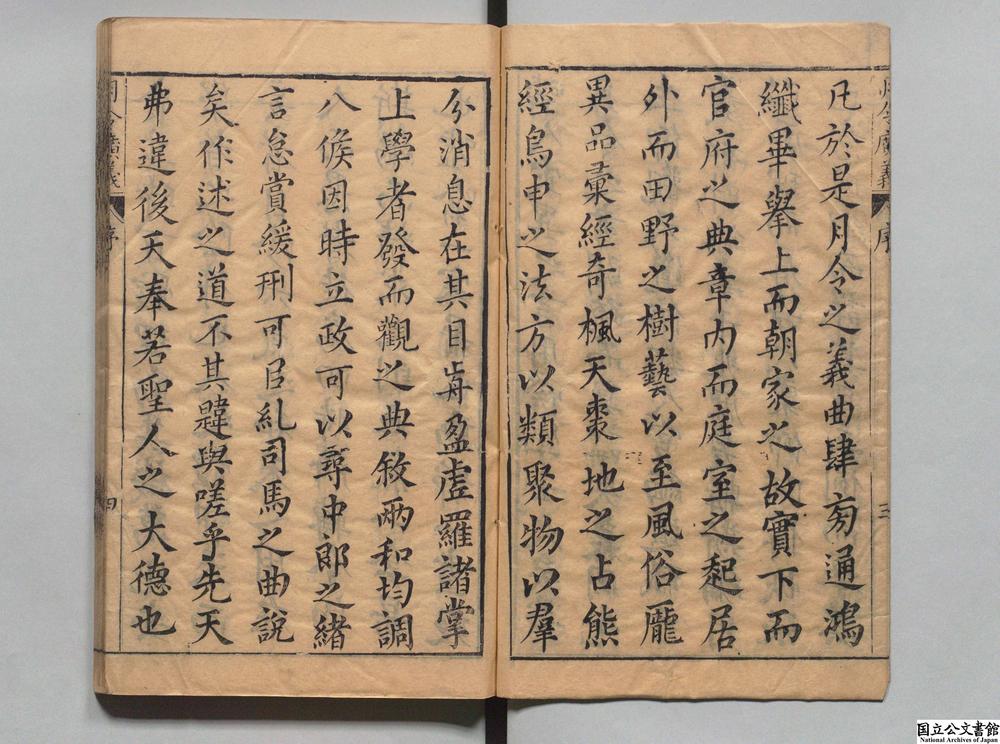 凡於是月令之義曲肆旁通鴻
纖畢舉上而朝家之故實下而
官府之典章內而庭室之起居
外而田野之樹藝以至風俗龐
異品彙經奇楓天棗地之占熊
經鳥申之法方以類聚物以羣
分消息在其目歬盈虛羅諸掌
上學者發而觀之典敘兩和均調
八候因時立政可以尋中郎之緒
言怠賞緩刑可㠯糺司馬之曲說
矣作述之道不其韙與嗟乎先天
弗違後天奉若聖人之大德也
月令廣義
序
三
月令廣義
序
四
国立公文書館
National Archives of Japan